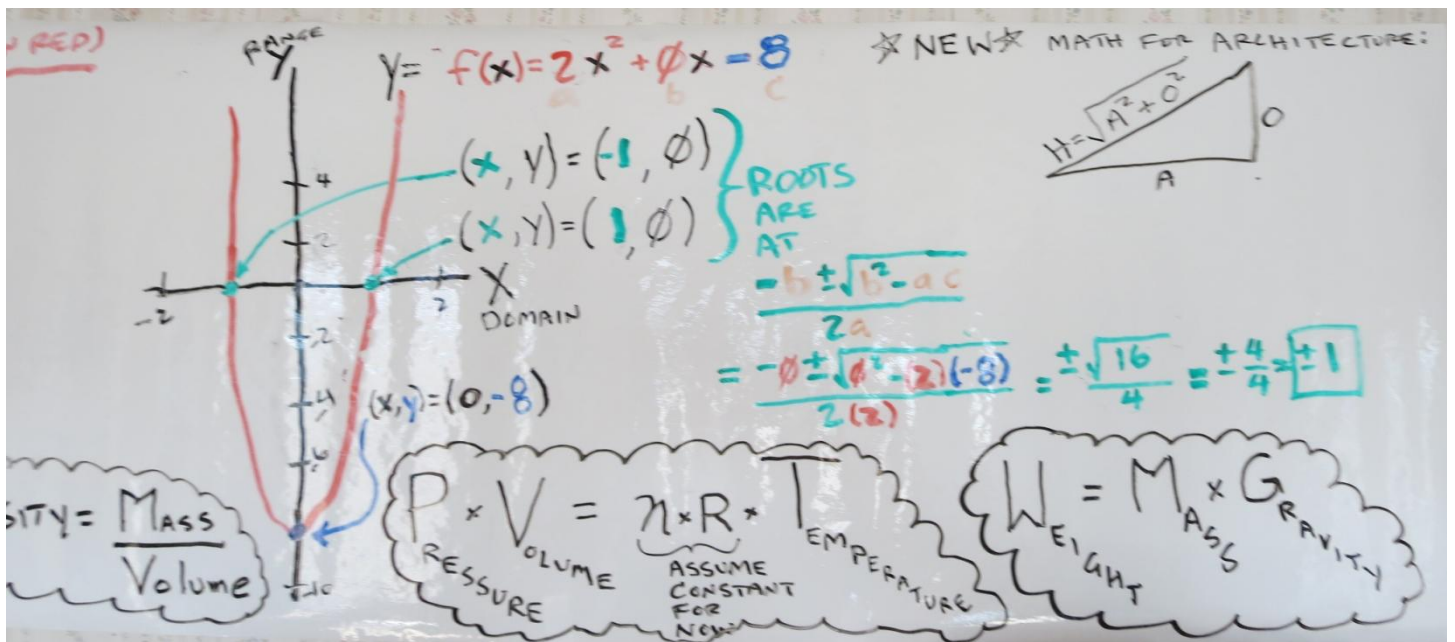 N RED)
RANGE
Y
y= f(x)=2x²+∅x-8
a b c
☆NEW☆ MATH FOR ARCHITECTURE:
H=√A²+O²
O
A
(x,y)=(-1,∅)
(x,y)=(1,∅)
ROOTS
ARE
AT
4
2
-2
2
X
DOMAIN
-2
-4
-6
-10
-b±√b²-ac
2a
= -∅±√∅²-(2)(-8) = ±√16 = ±4 = ±1
2(2) 4 4
(x,y)=(0,-8)
SITY = MASS
VOLUME
PRESSURE × VOLUME = n×R × TEMPERATURE
ASSUME
CONSTANT
FOR
NOW
WEIGHT = MASS × GRAVITY